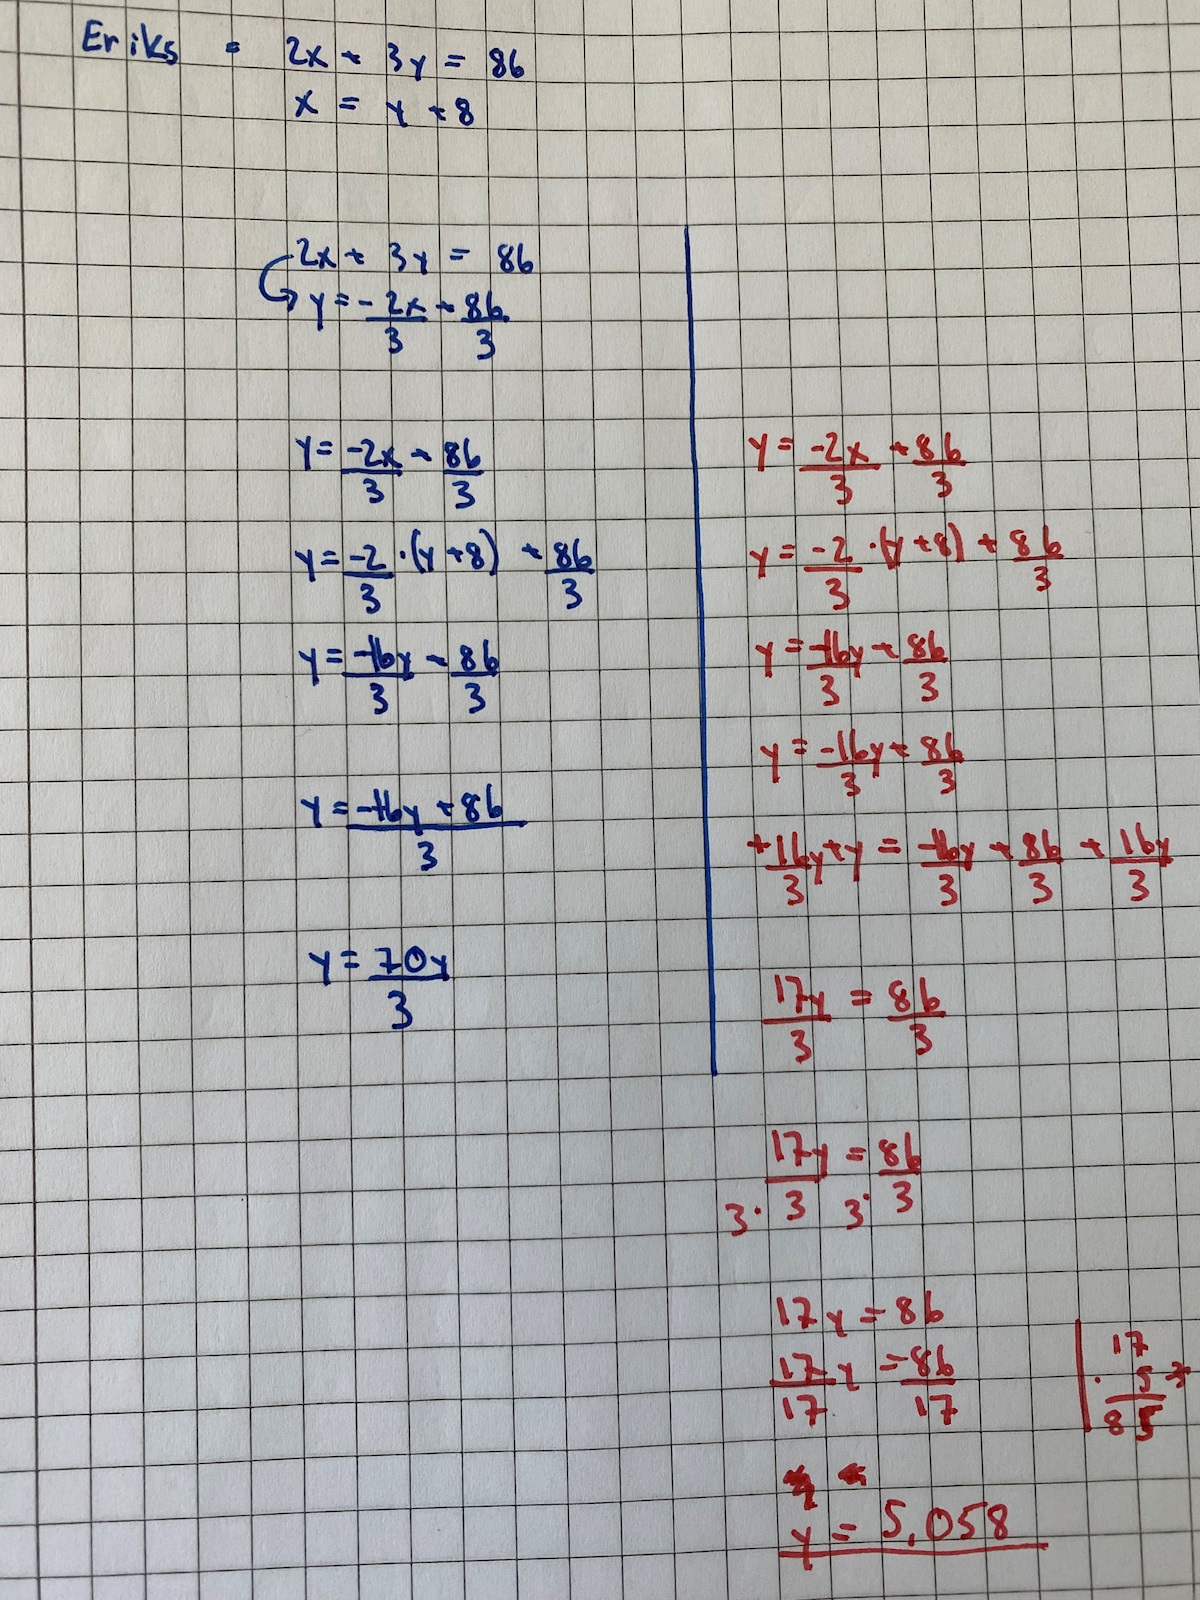 Eriks = 2x + 3y = 86
x = y + 8
2x + 3y = 86
y = -2x/3 + 86/3
y = -2x/3 + 86/3
y = -2/3 · (y + 8) + 86/3
y = -16y/3 + 86/3
y = -16y + 86/3
y = 70y/3
y = -2x/3 + 86/3
y = -2/3 · (y + 8) + 86/3
y = -16y/3 + 86/3
y = -16/3 y + 86/3
+16/3 y + y = -16y/3 + 86/3 + 16y/3
17y/3 = 86/3
3 · 17y/3 = 3 · 86/3
17y = 86
17/17 y = 86/17
y = 5,058
17
· 5
85